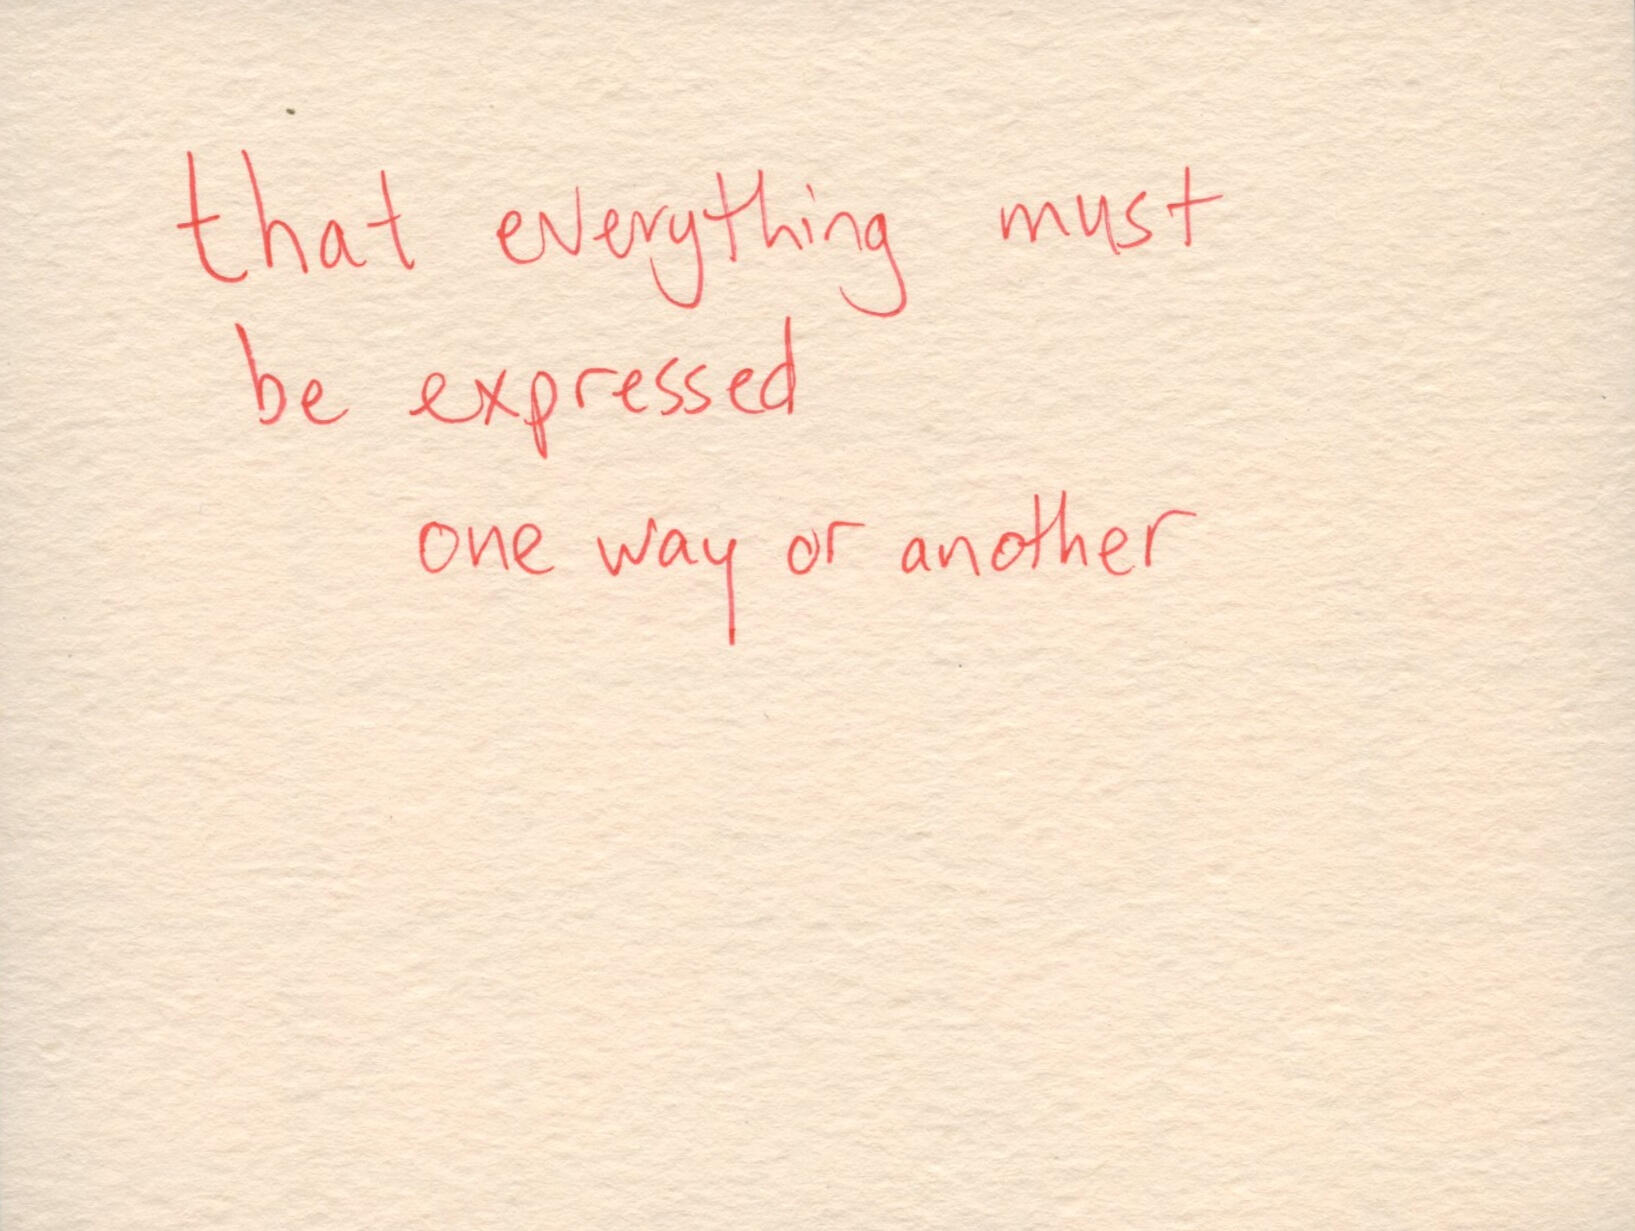 that everything must
be expressed
one way or another